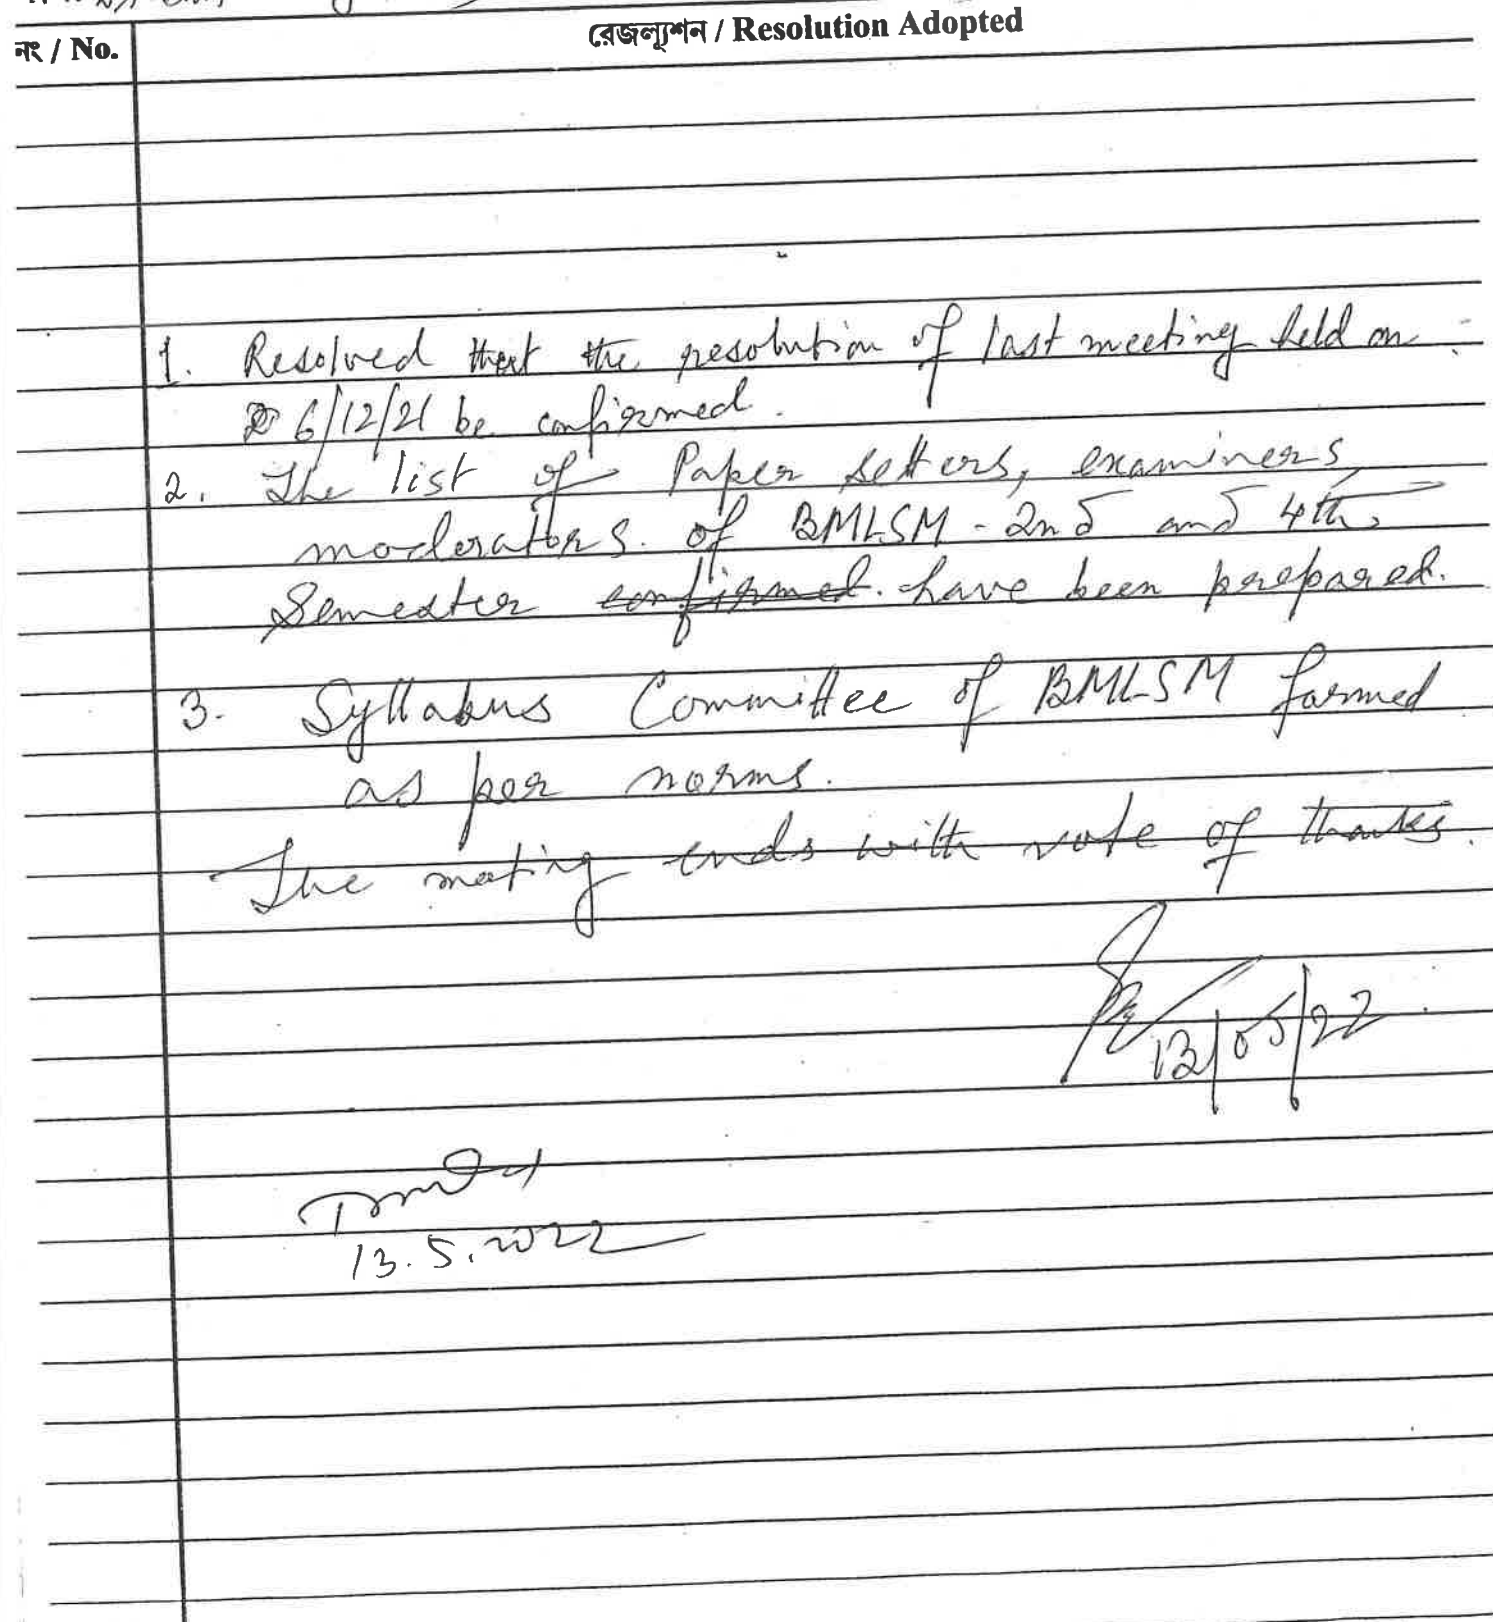 নং / No.
রেজল্যুশন / Resolution Adopted
1. Resolved that the resolution of last meeting held on
6/12/21 be confirmed.
2. The list of Paper setters, examiners,
moderators. of BMLSM - 2nd and 4th
Semester confirmed. have been prepared.
3. Syllabus Committee of BMLSM formed
as per norms.
The meeting ends with vote of thanks.
13/05/22
13.5.2022